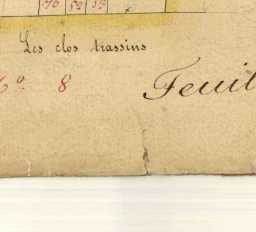 70 52 53
Les clos trassins
6º 8 Feuil